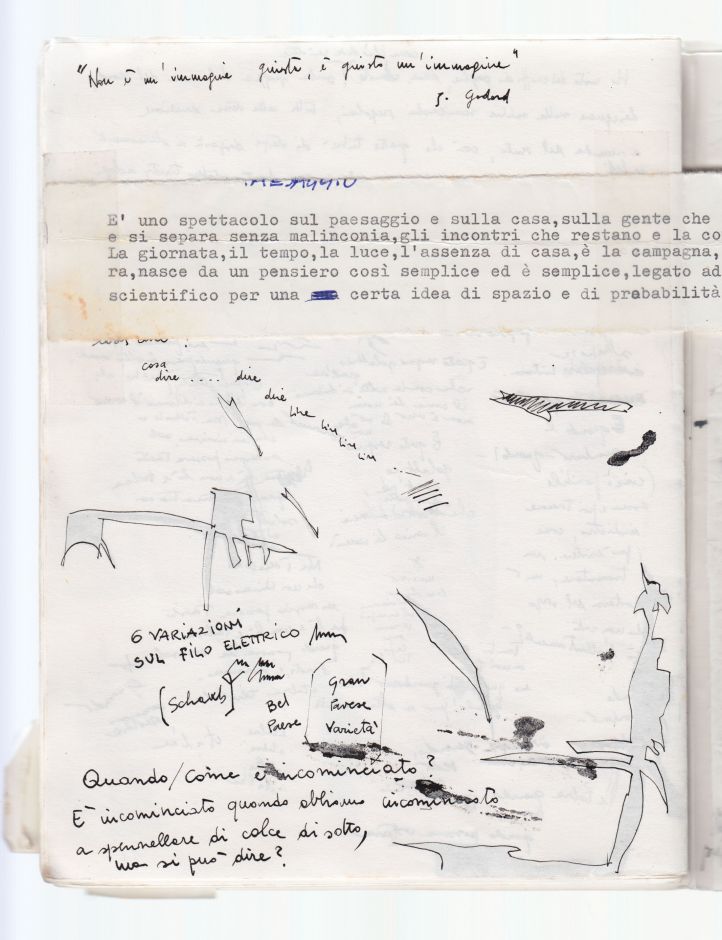 "Non è un'immagine giusta, è giusto un'immagine"
J. Godard
PAESAGGIO
E' uno spettacolo sul paesaggio e sulla casa,sulla gente che
e si separa senza malinconia,gli incontri che restano e la co
La giornata,il tempo,la luce,l'assenza di casa,è la campagna,
ra,nasce da un pensiero così semplice ed è semplice,legato ad
scientifico per una certa idea di spazio e di probabilità
cosa
dire .... dire
dire
dire
dire
dire
dire ...
6 VARIAZIONI
SUL FILO ELETTRICO
(Schwab)
Bel
Paese
Gran
Pavese
Varietà
Quando/Come è incominciato?
E' incominciato quando abbiamo incominciato
a spennellare di calce di sotto,
ma si può dire?